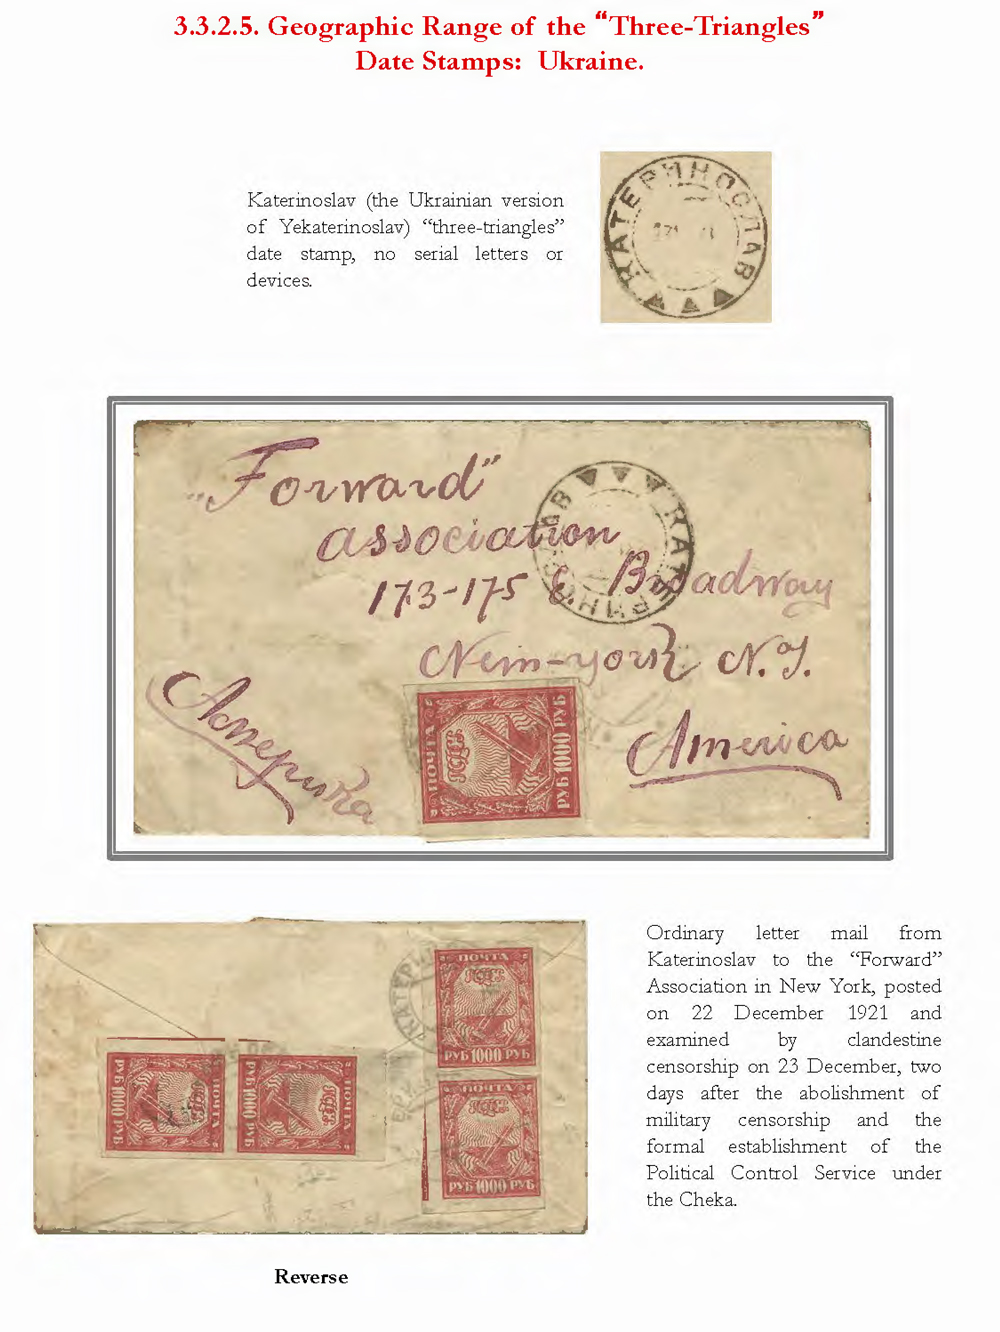 3.3.2.5. Geographic Range of the “Three-Triangles”
Date Stamps: Ukraine.
Katerinoslav (the Ukrainian version
of Yekaterinoslav) “three-triangles”
date stamp, no serial letters or
devices.
КАТЕРИНОСЛАВ
"Forward"
association
173-175 E Broadway
New-york N.Y.
America
Америка
КАТЕРИНОСЛАВ
ПОЧТА
РУБ 1000 РУБ
Ordinary letter mail from
Katerinoslav to the “Forward”
Association in New York, posted
on 22 December 1921 and
examined by clandestine
censorship on 23 December, two
days after the abolishment of
military censorship and the
formal establishment of the
Political Control Service under
the Cheka.
КАТЕРИ
ПОЧТА
РУБ 1000 РУБ
ПОЧТА
РУБ 1000 РУБ
ПОЧТА
РУБ 1000 РУБ
ПОЧТА
РУБ 1000 РУБ
Reverse